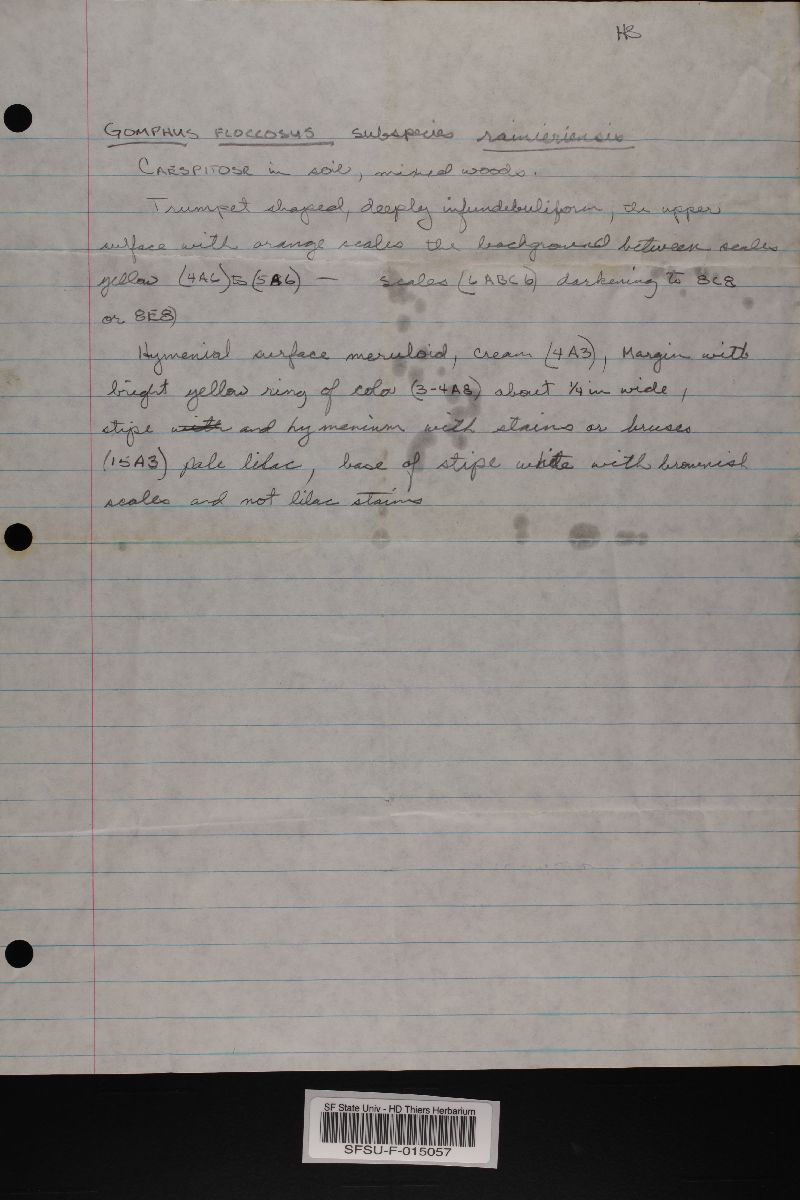 HB
GOMPHUS FLOCCOSUS subspecies rainieriensis
CAESPITOSE in soil, mixed woods.
Trumpet shaped, deeply infundebuliform, the upper
surface with orange scales the background between scales
yellow (4A6) to (5A6) — scales (6ABC6) darkening to 8C8
or 8E8)
Hymenial surface meruloid, cream (4A3), Margin with
bright yellow ring of color (3-4A8) about 1/4 in wide,
stipe with and hymenium with stains or bruses
(15A3) pale lilac, base of stipe white with brownish
scales and not lilac stains
SF State Univ - HD Thiers Herbarium
SFSU-F-015057